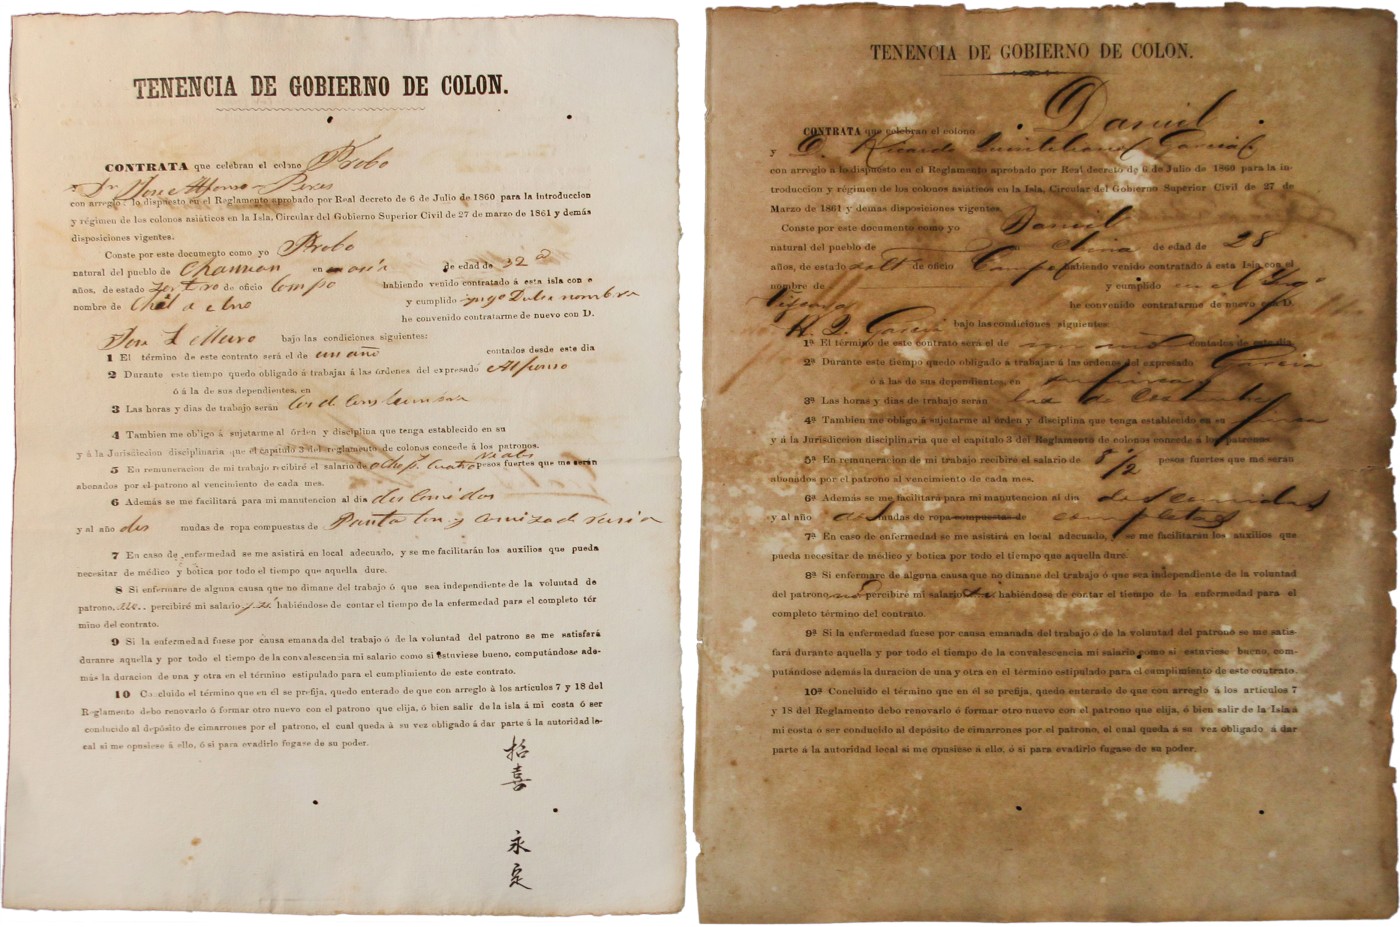 TENENCIA DE GOBIERNO DE COLON.
CONTRATA que celebran el colono Probo
y Dn Jose Alfonso Peres
con arreglo lo dispuesto en el Reglamento aprobado por Real decreto de 6 de Julio de 1860 para la introduccion
y régimen de los colonos asiáticos en la Isla, Circular del Gobierno Superior Civil de 27 de marzo de 1861 y demás
disposiciones vigentes.
Conste por este documento como yo Probo
natural del pueblo de en de edad de 32
años, de estado de oficio habiendo venido contratado á esta isla con e
nombre de y cumplido
he convenido contratarme de nuevo con D.
bajo las condiciones siguientes:
1 El término de este contrato será el de un año contados desde este dia
2 Durante este tiempo quedo obligado á trabajar á las órdenes del expresado Alfonso
ó á la de sus dependientes, en
3 Las horas y dias de trabajo serán las de
4 Tambien me obligo á sujetarme al órden y disciplina que tenga establecido en su
y á la Jurisdiccion disciplinaria que el capítulo 3 del reglamento de colonos concede á los patronos.
5 En remuneracion de mi trabajo recibiré el salario de cuatro reales pesos fuertes que me serán
abonados por el patrono al vencimiento de cada mes.
6 Además se me facilitará para mi manutencion al dia dos comidas
y al año dos mudas de ropa compuestas de Pantalon y camiza de rusia
7 En caso de enfermedad se me asistirá en local adecuado, y se me facilitarán los auxilios que pueda
necesitar de médico y botica por todo el tiempo que aquella dure.
8 Si enfermare de alguna causa que no dimane del trabajo ó que sea independiente de la voluntad de
patrono, no percibiré mi salario habiéndose de contar el tiempo de la enfermedad para el completo tér
mino del contrato.
9 Si la enfermedad fuese por causa emanada del trabajo ó de la voluntad del patrono se me satisfará
durante aquella y por todo el tiempo de la convalescencia mi salario como si estuviese bueno, computándose ade-
más la duracion de una y otra en el término estipulado para el cumplimiento de este contrato.
10 Concluido el término que en él se prefija, quedo enterado de que con arreglo á los artículos 7 y 18 del
Reglamento debo renovarlo ó formar otro nuevo con el patrono que elija, ó bien salir de la isla á mi costa ó ser
conducido al depósito de cimarrones por el patrono, el cual queda á su vez obligado á dar parte á la autoridad lo-
cal si me opusiese á ello, ó si para evadirlo fugase de su poder.
招喜 永定
TENENCIA DE GOBIERNO DE COLON.
CONTRATA que celebran el colono Daniel
y D. Ricardo Garcia
con arreglo a lo dispuesto en el Reglamento aprobado por Real decreto de 6 de Julio de 1860 para la in-
troduccion y régimen de los colonos asiaticos en la Isla, Circular del Gobierno Superior Civil de 27 de
Marzo de 1861 y demas disposiciones vigentes.
Conste por este documento como yo Daniel
natural del pueblo de en China de edad de 28
años, de estado soltº de oficio Campo habiendo venido contratado á esta Isla con el
nombre de y cumplido en el Ygº
he convenido contratarme de nuevo con D.
R. Q. Garcia bajo las condiciones siguientes
1ª El término de este contrato será el de un año contados de este dia
2ª Durante este tiempo quedo obligado a trabajar á las órdenes del expresado Garcia
ó á las de sus dependientes, en
3ª Las horas y dias de trabajo serán las de costumbre
4ª Tambien me obligo á sujetarme al orden y disciplina que tenga establecido en su finca
y á la Jurisdiccion disciplinaria que el capitulo 3 del Reglamento de colonos concede á los patronos.
5ª En remuneracion de mi trabajo recibiré el salario de 8 1/2 pesos fuertes que me serán
abonados por el patrono al vencimiento de cada mes.
6ª Además se me facilitará para mi manutencion al dia dos comidas
y al año dos mudas de ropa compuestas de completas
7ª En caso de enfermedad se me asistirá en local adecuado, y se me facilitarán los auxilios que
pueda necesitar de médico y botica por todo el tiempo que aquella dure.
8ª Si enfermare de alguna causa que no dimane del trabajo ó que sea independiente de la voluntad
del patrono no percibiré mi salario habiéndose de contar el tiempo de la enfermedad para el
completo término del contrato.
9ª Si la enfermedad fuese por causa emanada del trabajo ó de la voluntad del patrono se me satis-
fará durante aquella y por todo el tiempo de la convalescencia mi salario como si estaviese bueno, com-
putándose además la duracion de una y otra en el término estipulado para el cumplimiento de este contrato.
10ª Concluido el término que en él se prefija, quedo enterado de que con arreglo á los artículos 7
y 18 del Reglamento debo renovarlo ó formar otro nuevo con el patrono que elija, ó bien salir de la Isla á
mi costa ó ser conducido al depósito de cimarrones por el patrono, el cual queda á su vez obligado á dar
parte á la autoridad local si me opusiese á ello, ó si para evadirlo fugase de su poder.